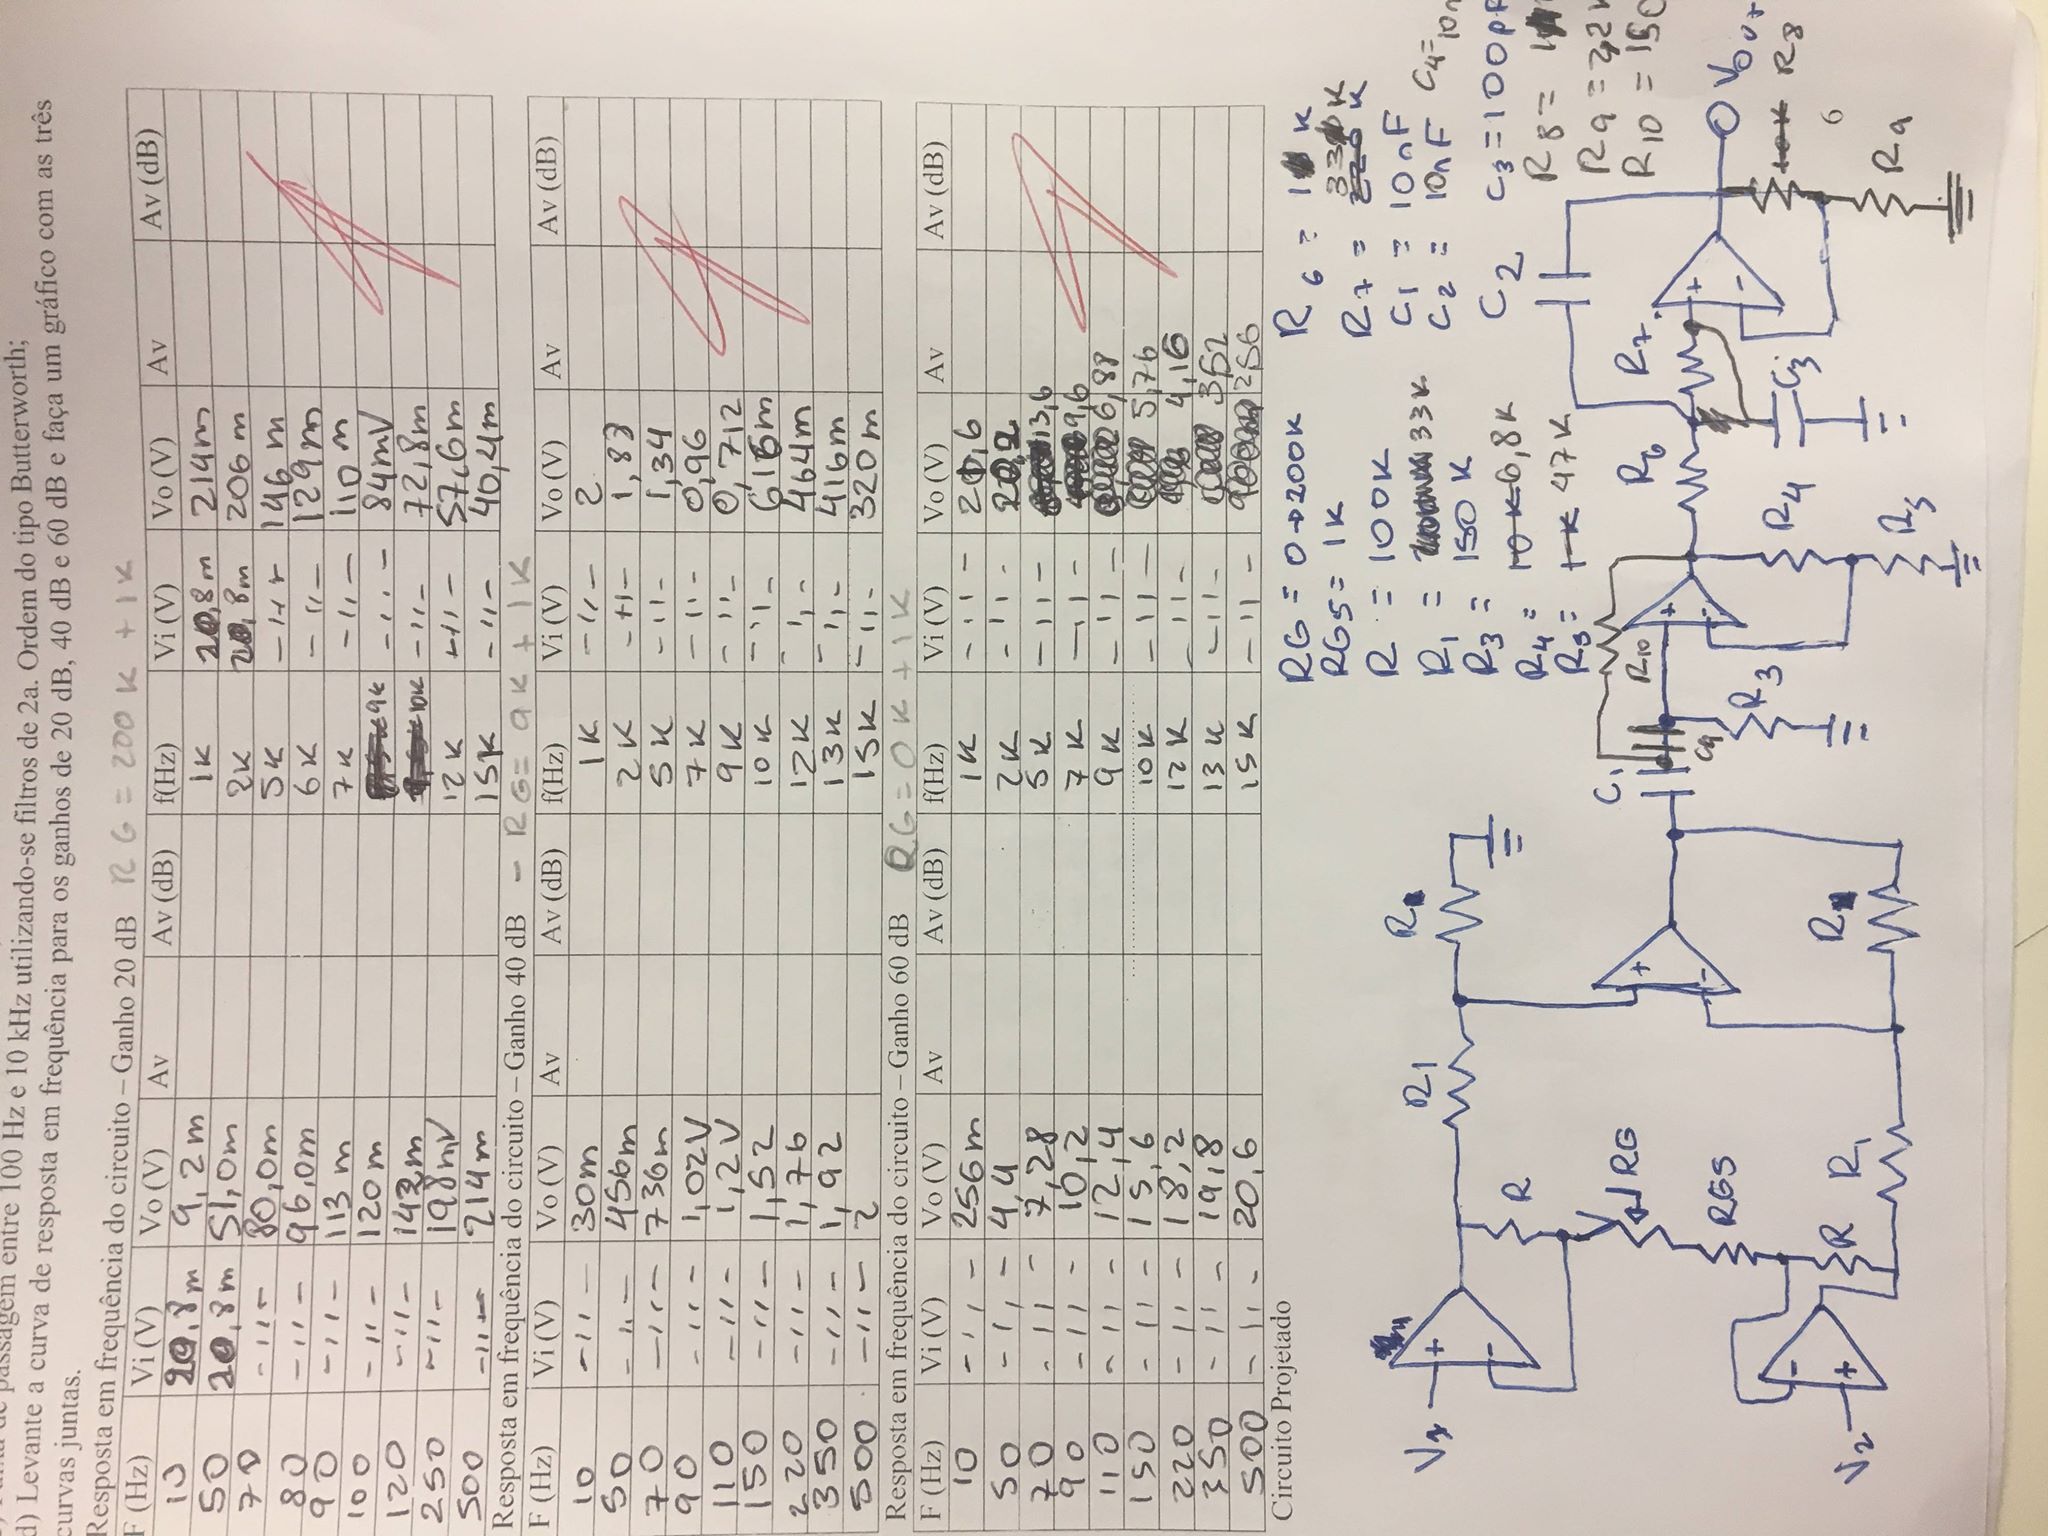 de passagem entre 100 Hz e 10 kHz utilizando-se filtros de 2a. Ordem do tipo Butterworth;
d) Levante a curva de resposta em frequência para os ganhos de 20 dB, 40 dB e 60 dB e faça um gráfico com as três
curvas juntas.
Resposta em frequência do circuito – Ganho 20 dB RG = 200K + 1K
F (Hz) Vi (V) Vo (V) Av Av (dB) f(Hz) Vi (V) Vo (V) Av Av (dB)
10 20,8m 9,2m 1K 20,8m 214m
50 20,8m 51,0m 2K 20,8m 206m
70 -11- 80,0m 5K -11- 146m
80 -11- 96,0m 6K -11- 129m
90 -11- 113m 7K -11- 110m
100 -11- 120m 9K -11- 84mV
120 -11- 142m 10K -11- 72,8m
250 -11- 198mV 12K -11- 57,6m
500 -11- 214m 15K -11- 40,4m
Resposta em frequência do circuito – Ganho 40 dB - RG = 9K + 1K
F (Hz) Vi (V) Vo (V) Av Av (dB) f(Hz) Vi (V) Vo (V) Av Av (dB)
10 -11- 30m 1K -11- 2
50 -11- 456m 2K -11- 1,83
70 -11- 736m 5K -11- 1,34
90 -11- 1,02V 7K -11- 0,96
110 -11- 1,2V 9K -11- 0,712
150 -11- 1,52 10K -11- 616m
220 -11- 1,76 12K -11- 464m
350 -11- 1,92 13K -11- 416m
500 -11- 2 15K -11- 320m
Resposta em frequência do circuito – Ganho 60 dB RG = 0K + 1K
F (Hz) Vi (V) Vo (V) Av Av (dB) f(Hz) Vi (V) Vo (V) Av Av (dB)
10 -11- 256m 1K -11- 20,6
50 -11- 4,4 2K -11- 20,2
70 -11- 7,28 5K -11- 13,6
90 -11- 10,2 7K -11- 9,6
110 -11- 12,4 9K -11- 6,88
150 -11- 15,6 10K -11- 5,76
220 -11- 18,2 12K -11- 4,16
350 -11- 19,8 13K -11- 3,52
500 -11- 20,6 15K -11- 2,56
Circuito Projetado
RG = 0→200K
RGS = 1K
R = 100K
R1 = 33K
R3 = 150K
R4 = 10K 6,8K
R5 = 1K 47K
R6 = 1 K
R7 = 220 K 33 K
C1 = 10nF
C2 = 10nF C4 = 10n
C3 = 100pF
R8 = 1
R9 = 2,2K
R10 = 150
V1
R1
R
R
RG
RGS
V2
R
R1
R
C1
C4
R10
R3
R4
R5
R6
R7
C2
C3
Vout
10K R8
R9
6